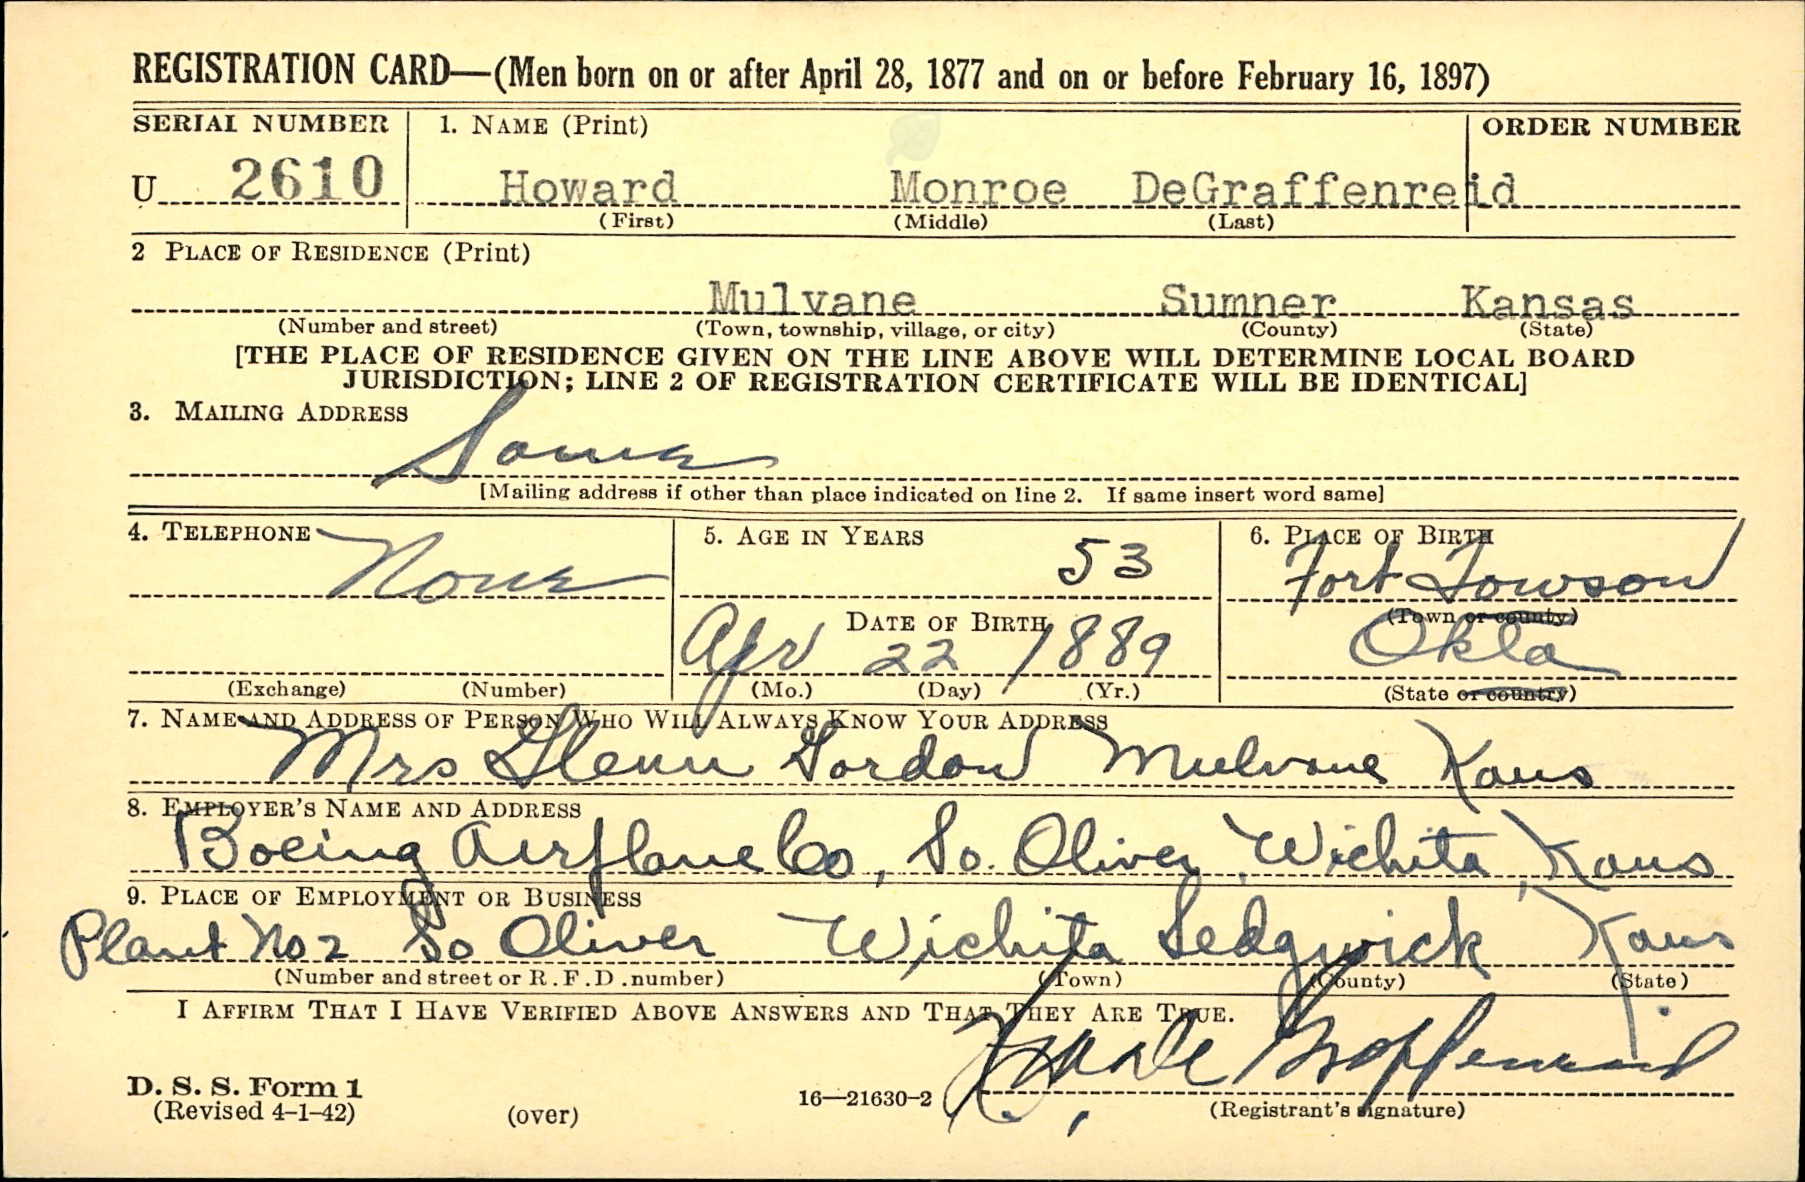 REGISTRATION CARD—(Men born on or after April 28, 1877 and on or before February 16, 1897)
SERIAL NUMBER 1. NAME (Print) ORDER NUMBER
U 2610 Howard Monroe DeGraffenreid
(First) (Middle) (Last)
2 PLACE OF RESIDENCE (Print)
Mulvane Sumner Kansas
(Number and street) (Town, township, village, or city) (County) (State)
[THE PLACE OF RESIDENCE GIVEN ON THE LINE ABOVE WILL DETERMINE LOCAL BOARD
JURISDICTION; LINE 2 OF REGISTRATION CERTIFICATE WILL BE IDENTICAL]
3. MAILING ADDRESS
Same
[Mailing address if other than place indicated on line 2. If same insert word same]
4. TELEPHONE 5. AGE IN YEARS 6. PLACE OF BIRTH
None 53 Fort Towson
DATE OF BIRTH (Town or county)
Apr 22 1889 Okla
(Exchange) (Number) (Mo.) (Day) (Yr.) (State or country)
7. NAME AND ADDRESS OF PERSON WHO WILL ALWAYS KNOW YOUR ADDRESS
Mrs Glenn Gordon Mulvane Kans
8. EMPLOYER'S NAME AND ADDRESS
Boeing Airplane Co, So. Oliver, Wichita, Kans
9. PLACE OF EMPLOYMENT OR BUSINESS
Plant No 2 So Oliver Wichita Sedgwick Kans
(Number and street or R.F.D. number) (Town) (County) (State)
I AFFIRM THAT I HAVE VERIFIED ABOVE ANSWERS AND THAT THEY ARE TRUE.
D. S. S. Form 1
(Revised 4-1-42) (over) 16—21630-2 (Registrant's signature)